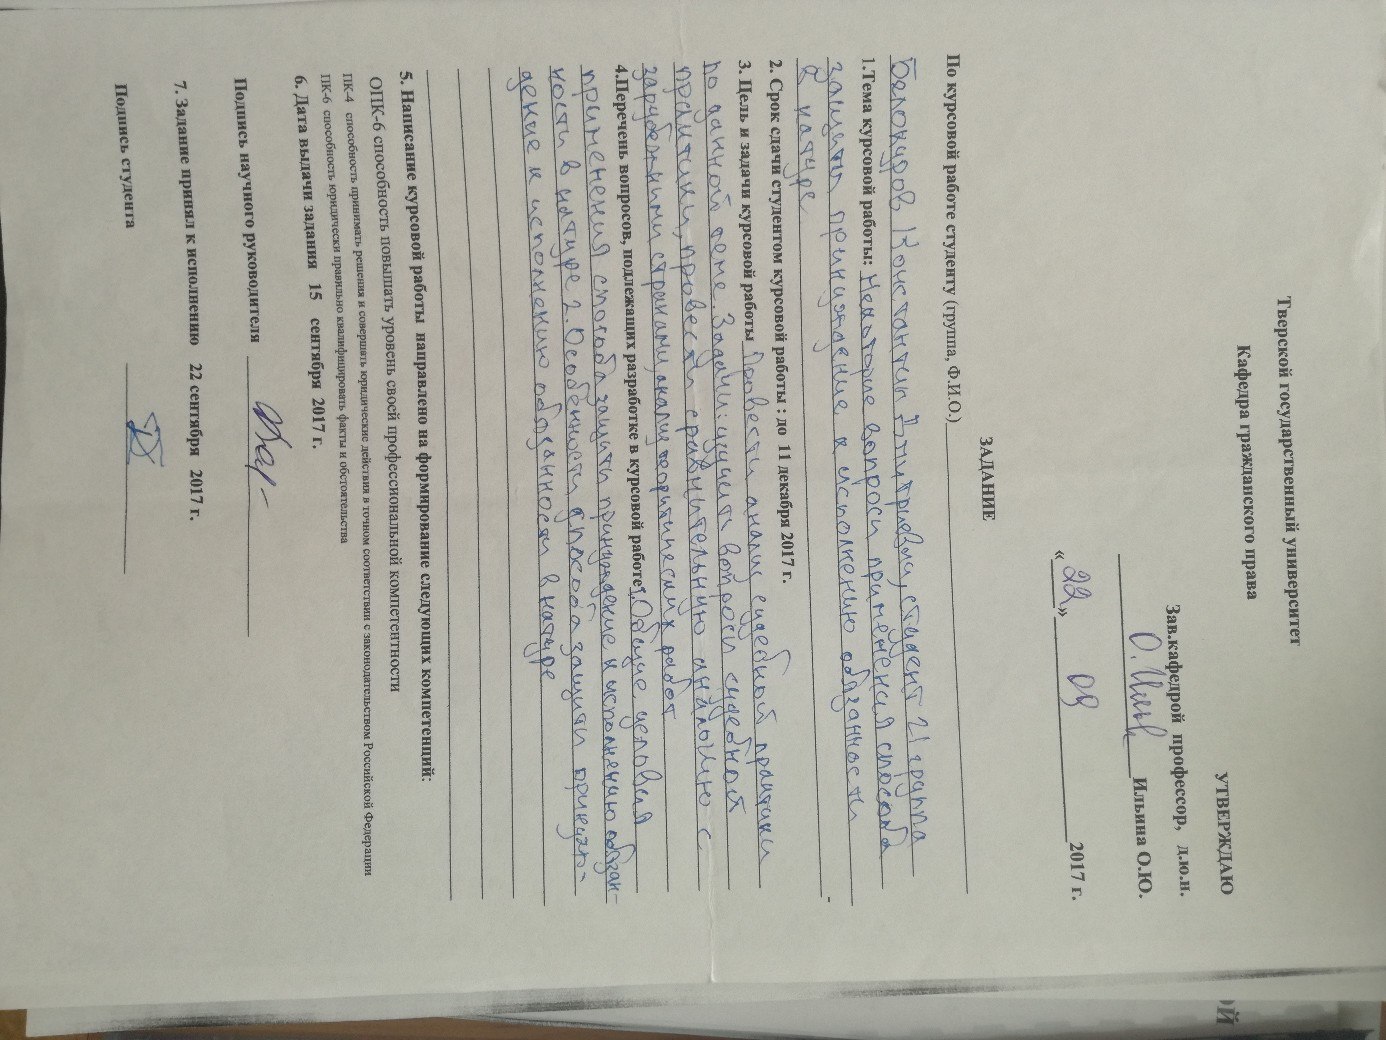 Тверской государственный университет
Кафедра гражданского права
УТВЕРЖДАЮ
Зав.кафедрой профессор, д.ю.н.
Ильина О.Ю.
«22» 09 2017 г.
ЗАДАНИЕ
По курсовой работе студенту (группа, Ф.И.О.)
Белокуров Константин Дмитриевич, студент 21 группа
1.Тема курсовой работы: Некоторые вопросы применения способа
защиты принуждение к исполнению обязанности
в натуре
2. Срок сдачи студентом курсовой работы : до 11 декабря 2017 г.
3. Цель и задачи курсовой работы Провести анализ судебной практики
по данной теме. Задачи: изучить вопросы судебной
практики, провести сравнительную аналогию с
зарубежными странами, анализ теоритических работ
4.Перечень вопросов, подлежащих разработке в курсовой работе: 1.Общие условия
применения способа защиты принуждение к исполнению обязан-
ности в натуре 2.Особенности способа защиты принуж-
дение к исполнению обязанности в натуре
5. Написание курсовой работы направлено на формирование следующих компетенций:
ОПК-6 способность повышать уровень своей профессиональной компетентности
ПК-4 способность принимать решения и совершать юридические действия в точном соответствии с законодательством Российской Федерации
ПК-6 способность юридически правильно квалифицировать факты и обстоятельства
6. Дата выдачи задания 15 сентября 2017 г.
Подпись научного руководителя
7. Задание принял к исполнению 22 сентября 2017 г.
Подпись студента
ОЙ